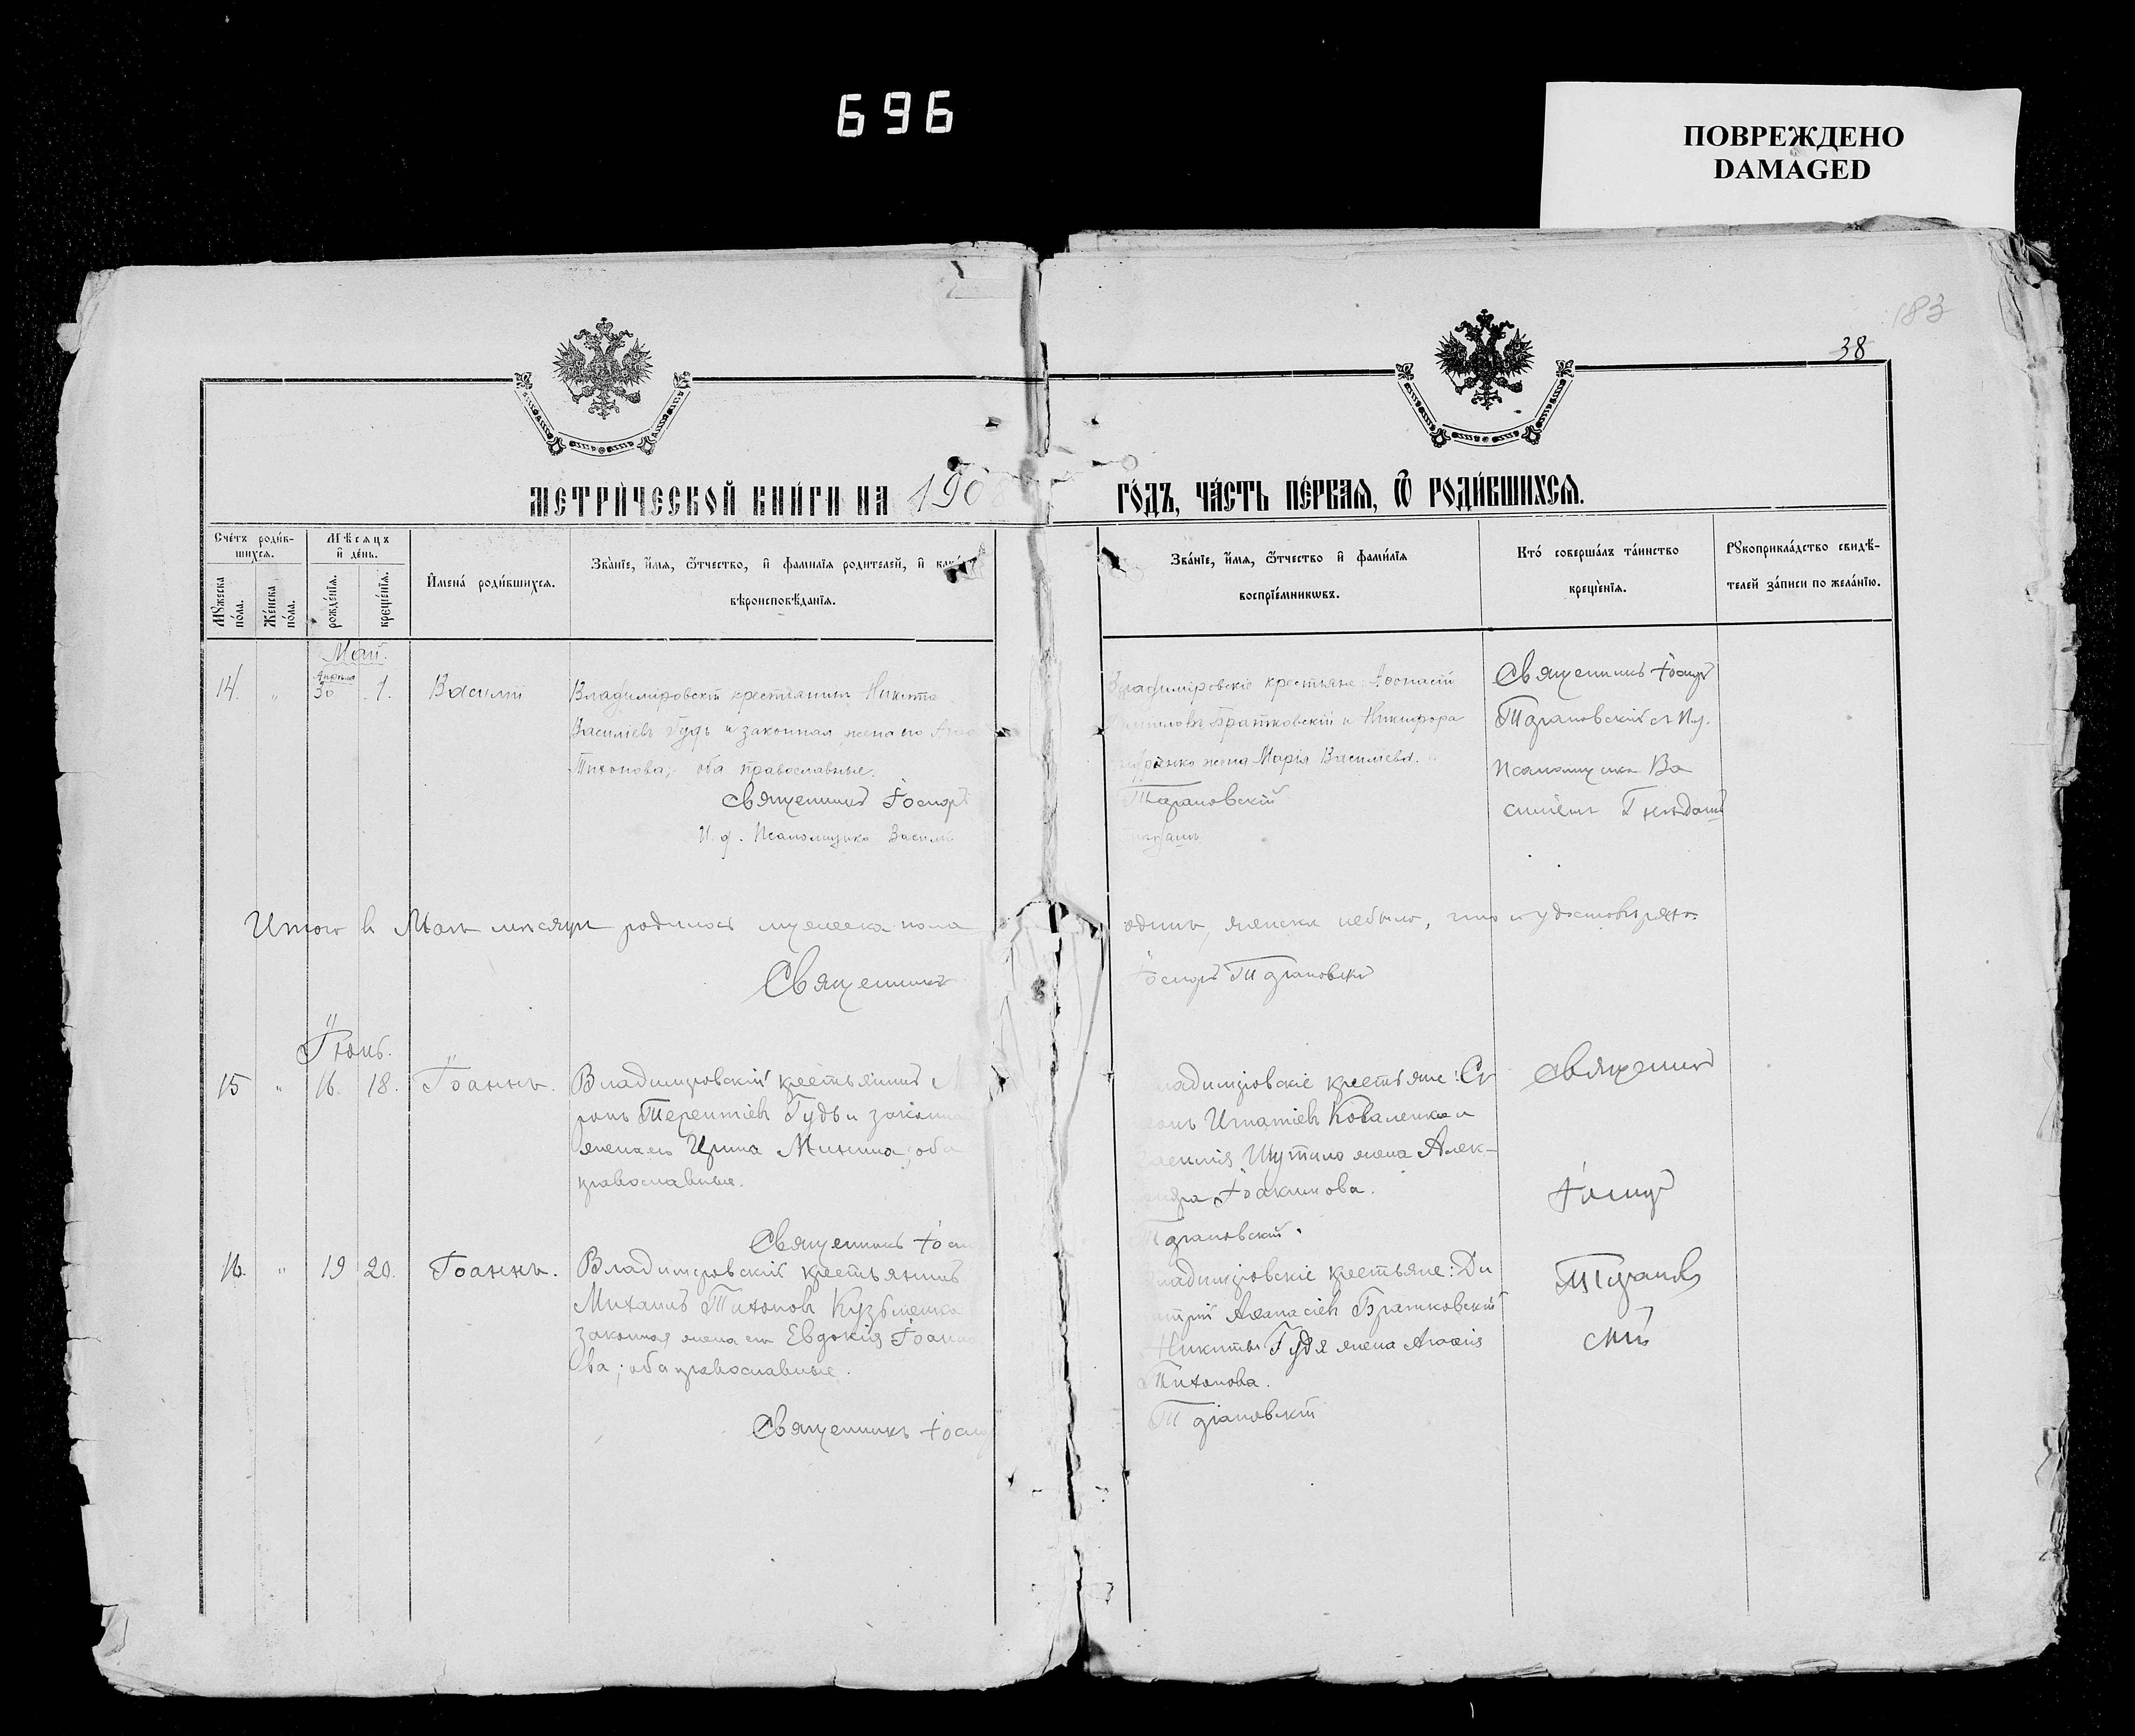 696
ПОВРЕЖДЕНО
DAMAGED
183
38
МЕТРИ́ЧЕСКОЙ КНИ́ГИ НА 190
ГО́ДЪ, ЧА́СТЬ ПЕ́РВАЯ, Ѿ РОДИ́ВШИХСЯ.
Сче́тъ роди́в-
шихся.
Мѣ́сяцъ
и҆ де́нь.
И҆мена́ роди́вшихся.
Зва́нїе, и҆́мя, ѻ҆́тчество, и҆ фами́лїя родителей, и҆
вѣроисповѣ́данїя.
Мꙋ́жеска
по́ла.
Же́нска
по́ла.
рожде́нїя.
креще́нїя.
Зва́нїе, и҆́мя, ѻ҆́тчество и҆ фами́лїя
воспрїе́мникѡвъ.
Кто̀ соверша́лъ та́инство
креще́нїя.
Рꙋкоприкла́дство свидѣ́-
телей за́писи по жела́нїю.
Май.
14. " Апрѣля 30 1. Василій
Владиміровскій крестьянинъ Никита
Василіевъ Гудь и законная жена его
Тихонова; оба православные.
Священникъ Іосифъ
И. д. Псаломщика Васил
Владиміровскіе крестьяне: Аѳонасій
Братковскій и Никифора
жена Марія Василіева.
Тарановскій
Священникъ Іосифъ
Тарановскій съ И.д.
Псаломщика Ва
силіемъ
Итого въ Маѣ мѣсяцѣ родилось мужеска пола
одинъ, женска небыло, что и удостовѣряю
Священникъ
Іосифъ Тарановскій
Іюнь.
15 " 16. 18. Іоаннъ.
Владиміровскій крестьянинъ М
ронъ Терентіевъ Гудь и законна
жена его Ирина Минина; оба
православные.
Священникъ Іоси
ладиміровскіе крестьяне: Си
Игнатіевъ Коваленко и
асилія Шутько жена Алек-
андра Іоакимова.
Тарановскій.
Священникъ
Іосифъ
Таранов
скій
16. " 19 20. Іоаннъ.
Владиміровскій крестьянинъ
Михаилъ Тихоновъ Кузьменко
законная жена его Евдокія Іоанно
ва; оба православные.
Священникъ Іосиф
ладиміровскіе крестьяне: Ди
митрій Аѳанасіевъ Братковскій
Никиты Гудя жена Агаѳія
Тихонова.
Тарановскій